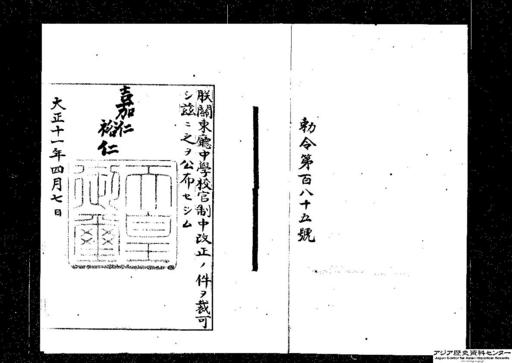 勅令第百八十五號
朕關東廳中學校官制中改正ノ件ヲ裁可
シ茲ニ之ヲ公布セシム
嘉仁
裕仁
天皇
御璽
大正十一年四月七日
アジア歴史資料センター
Japan Center for Asian Historical Records